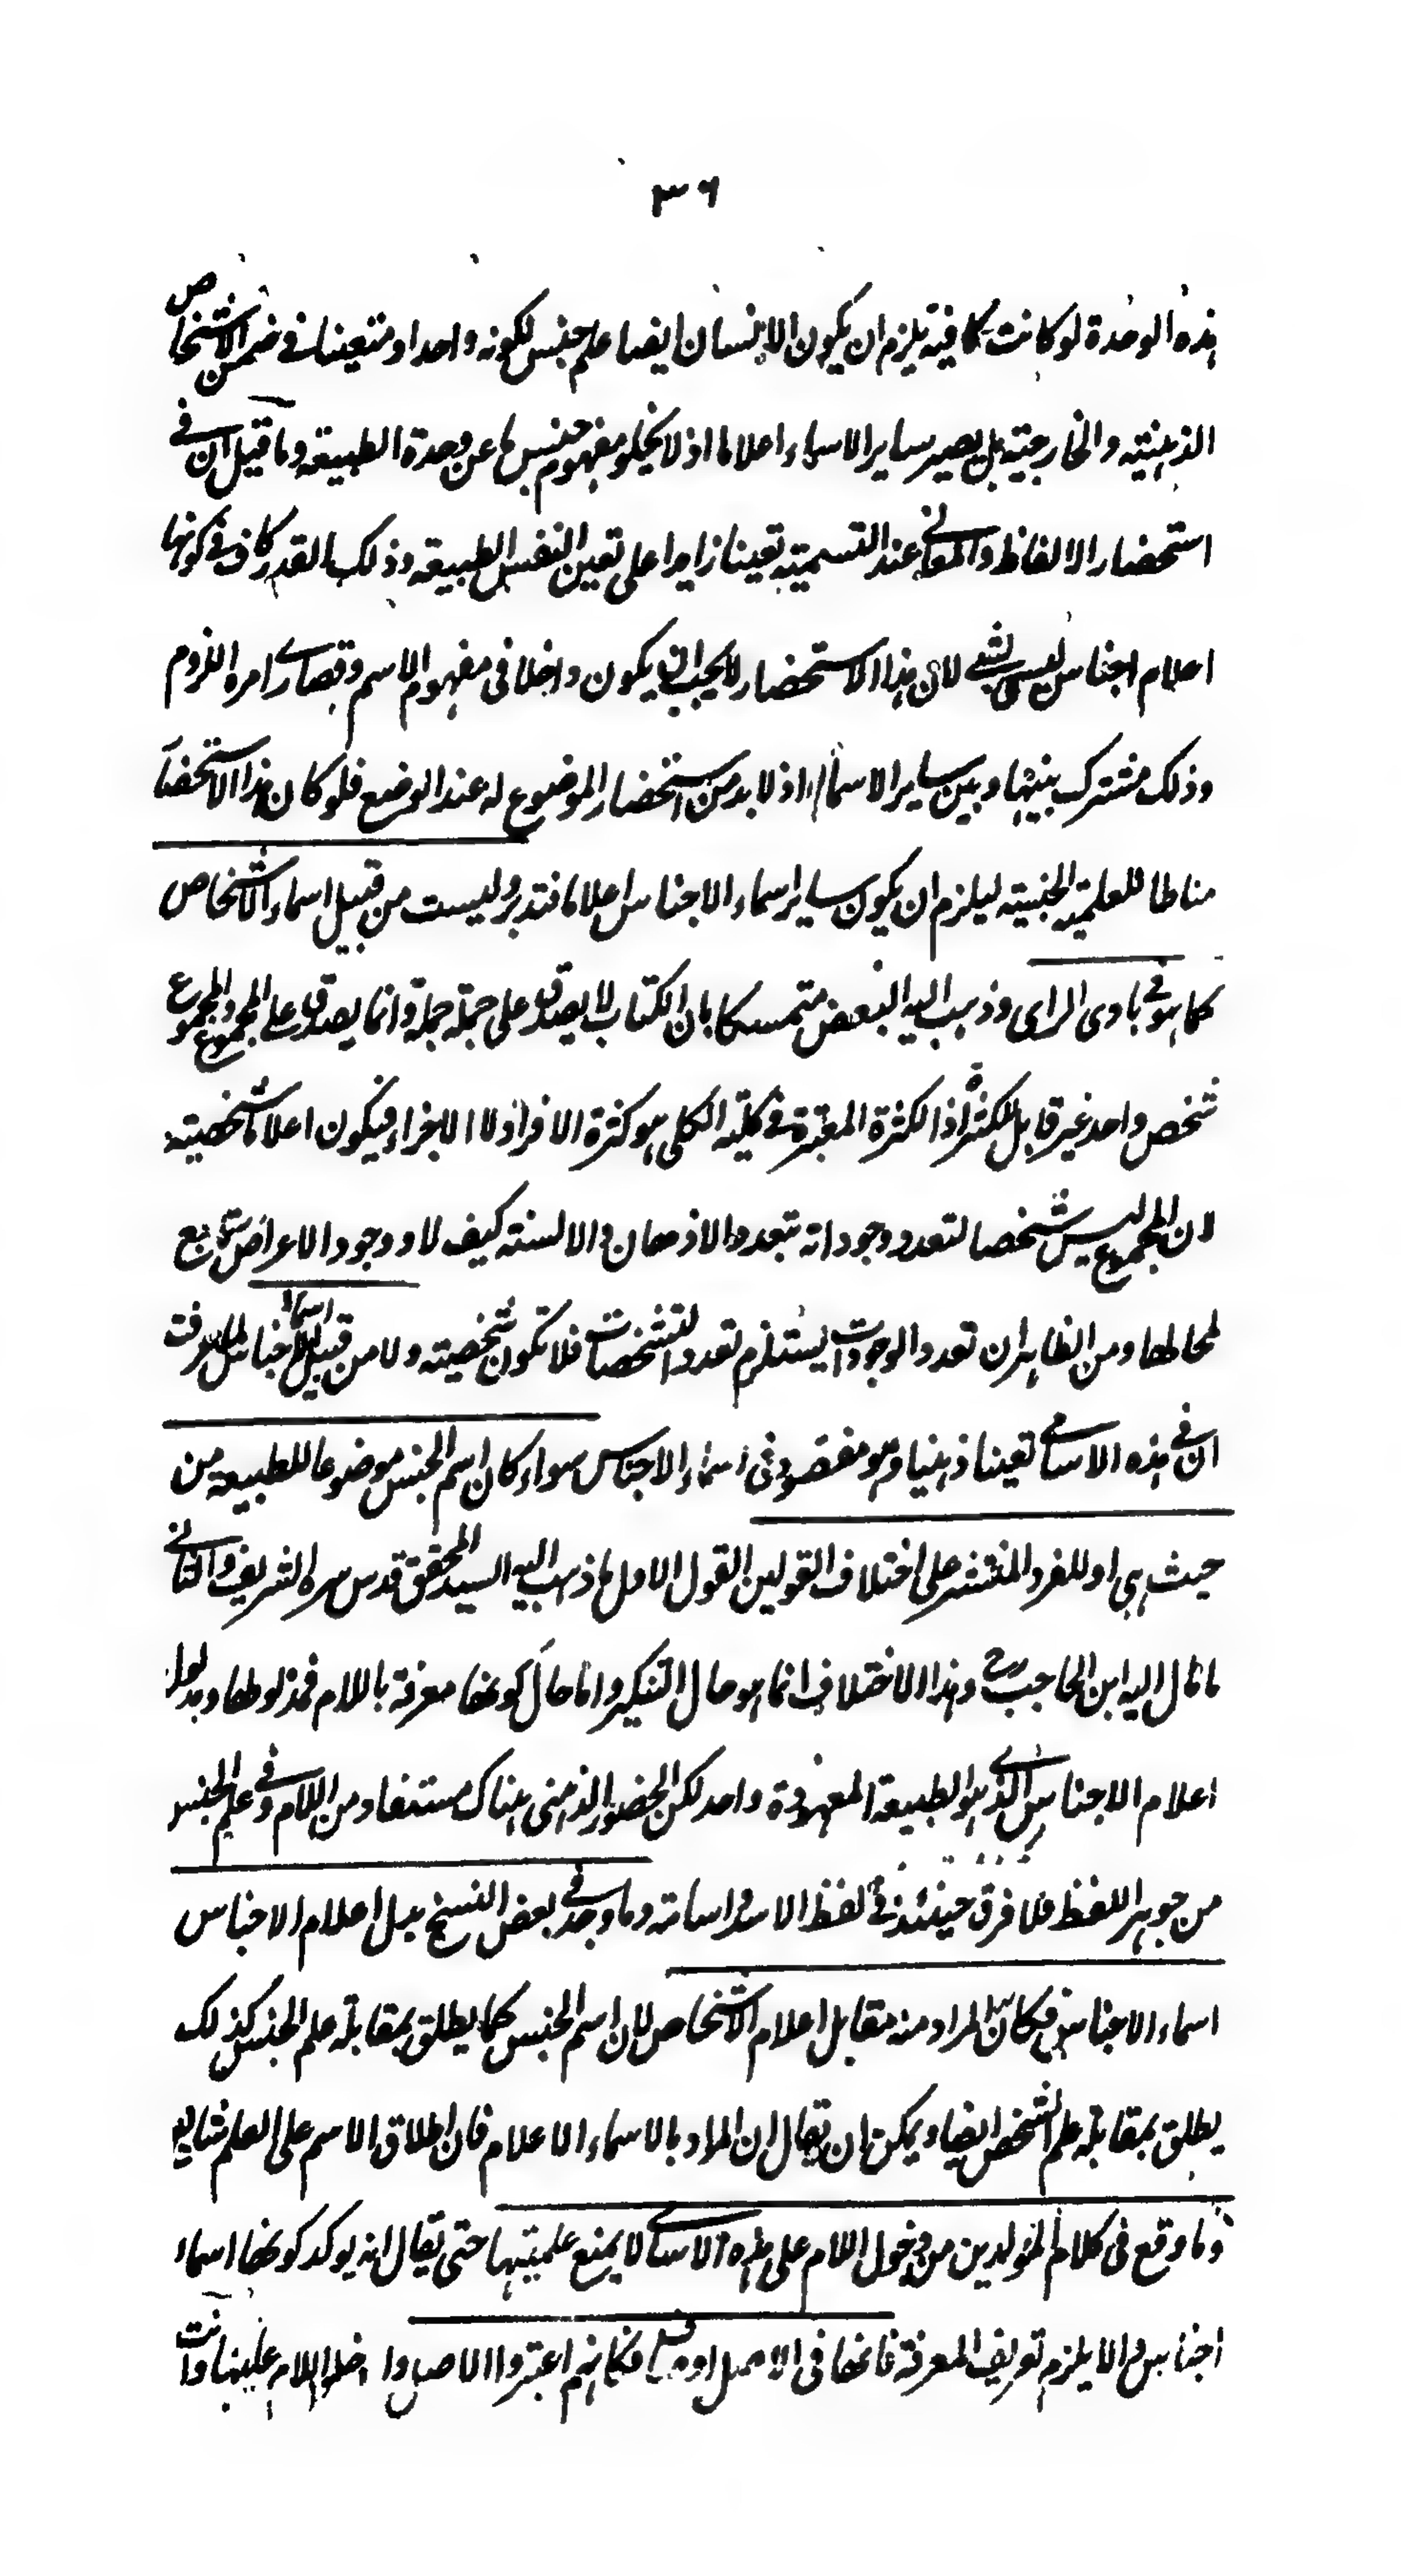 ٣٦
هذه الوحدة لو كانت كافية يلزم ان يكون الانسان ايضا علم جنس لكونه واحدا ومتعينا في ضمن الاشخاص
الذهنية والخارجية بل يصير ساير الاسماء اعلاما اذ لا يخلو مفهوم جنس ما عن وحدة الطبيعة وما قيل ان في
استحضار الالفاظ والمعاني عند التسمية تعينا زايدا على تعين النفس الطبيعة وذلك القدر كاف في كونها
اعلام اجناس ليس بشي لان هذا الاستحضار لا يجب ان يكون داخلا في مفهوم الاسم وقصارے امره اللزوم
وذلك مشترك بينها وبين ساير الاسماء اذ لا بد من استحضار الموضوع له عند الوضع فلو كان هذا الاستحضار
مناطا للعلمية الجنسية ليلزم ان يكون ساير اسماء الاجناس اعلاما فتدبر وليست من قبيل اسماء الاشخاص
كما هو في بادى الراى وذهب اليه البعض متمسكا بان الكتاب لا يصدق على جملة جملة وانما يصدق على المجموع والمجموع
شخص واحد غير قابل للكثرة اذ الكثرة المعتبرة في كلية الكلى هو كثرة الافراد لا الاجزاء فيكون اعلاما شخصية
لان المجموع ليس شخصا لتعدد وجوداته بتعدد الاذهان والالسنة كيف لا ووجود الاعراض تابع
لمحالها ومن الظاهر ان تعدد الوجودات يستلزم تعدد التشخصات فلا تكون شخصية ولا من قبيل اسماء الاجناس لما عرفت
ان في هذه الاسامي تعينا ذهنيا وهو مفقود في اسماء الاجناس سواء كان اسم الجنس موضوعا للطبيعة من
حيث هي او للفرد المنتشر على اختلاف القولين القول الاول ما ذهب اليه السيد المحقق قدس سره الشريف والثاني
ما مال اليه ابن الحاجب رح وهذا الاختلاف انما هو حال التنكير واما حال كونها معرفة باللام فمدلولها ومدلول
اعلام الاجناس الذے هو الطبيعة المعهودة واحد لكن الحضور الذهنى هناك مستفاد من اللام وفي علم الجنس
من جوهر اللفظ فلا فرق حينئذ في لفظ الاسد واسامة وما وجد في بعض النسخ بدل اعلام الاجناس
اسماء الاجناس فكان المراد منه مقابل اعلام الاشخاص لان اسم الجنس كما يطلق بمقابلة علم الجنس كذلك
يطلق بمقابلة علم الشخص ايضا ويمكن ان يقال ان المراد بالاسماء الاعلام فان اطلاق الاسم على العلم شايع
وما وقع في كلام المولدين من دخول اللام على هذه الاسامے لا يمنع علميتها حتى يقال انه يوكد كونها اسماء
اجناس والا يلزم تعريف المعرفة فانها في الاصل اوصاف فكانهم اعتبروا الاصل وادخلوا اللام عليها وانت